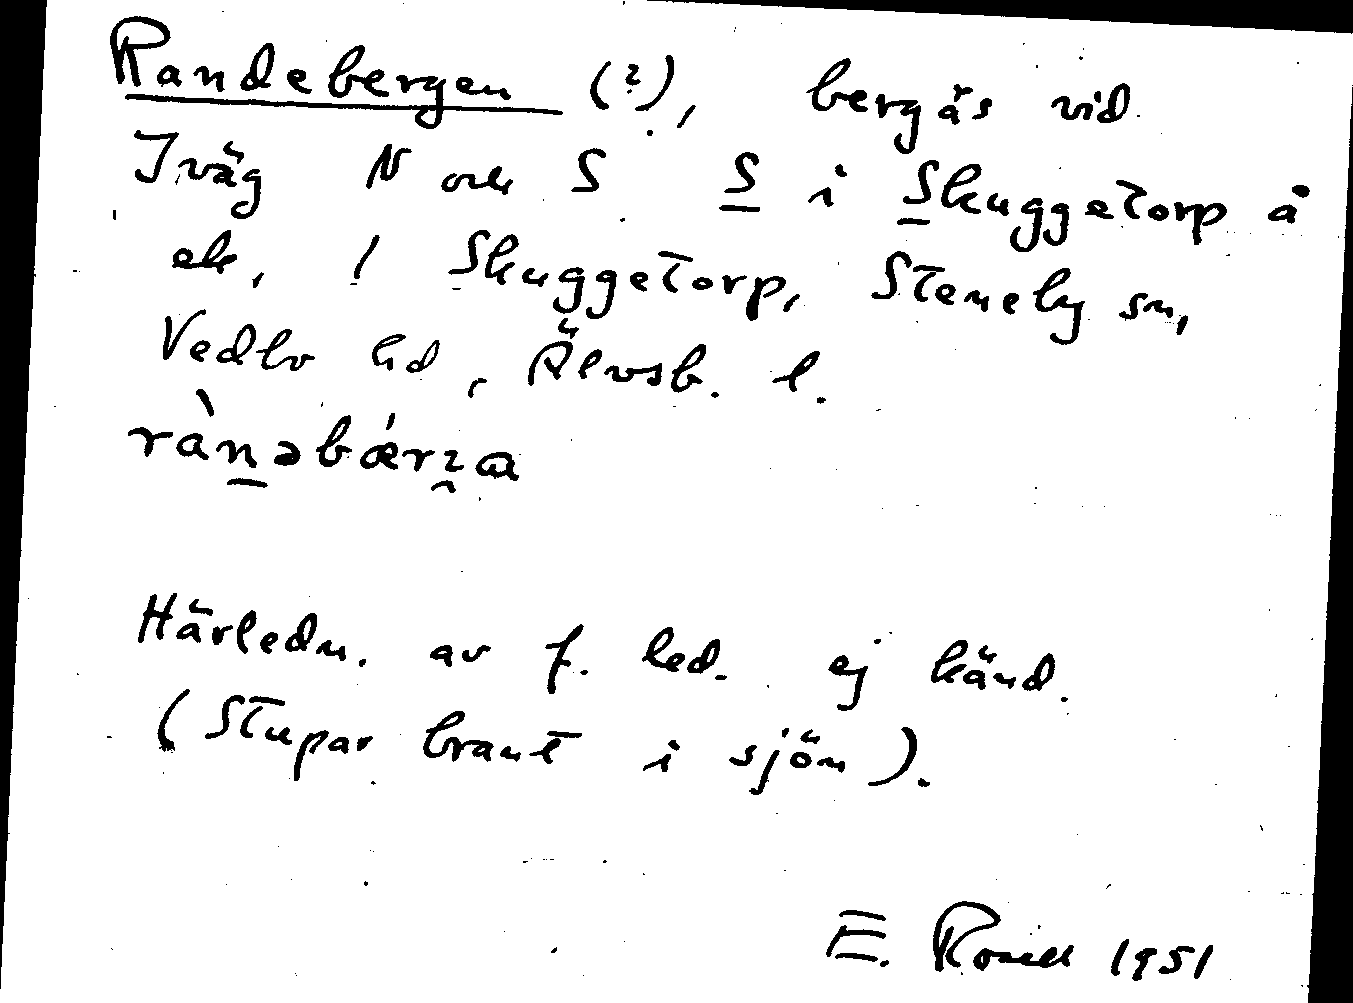 Randebergen (?), bergås vid
Iväg N och S S i Skuggetorp å
ek, 1 Skuggetorp, Steneby sn,
Vedbo hd, Älvsb. l.
rànəbǽrɀa
Härledn. av f. led. ej känd.
(Stupar brant i sjön).
E. Rosell 1951